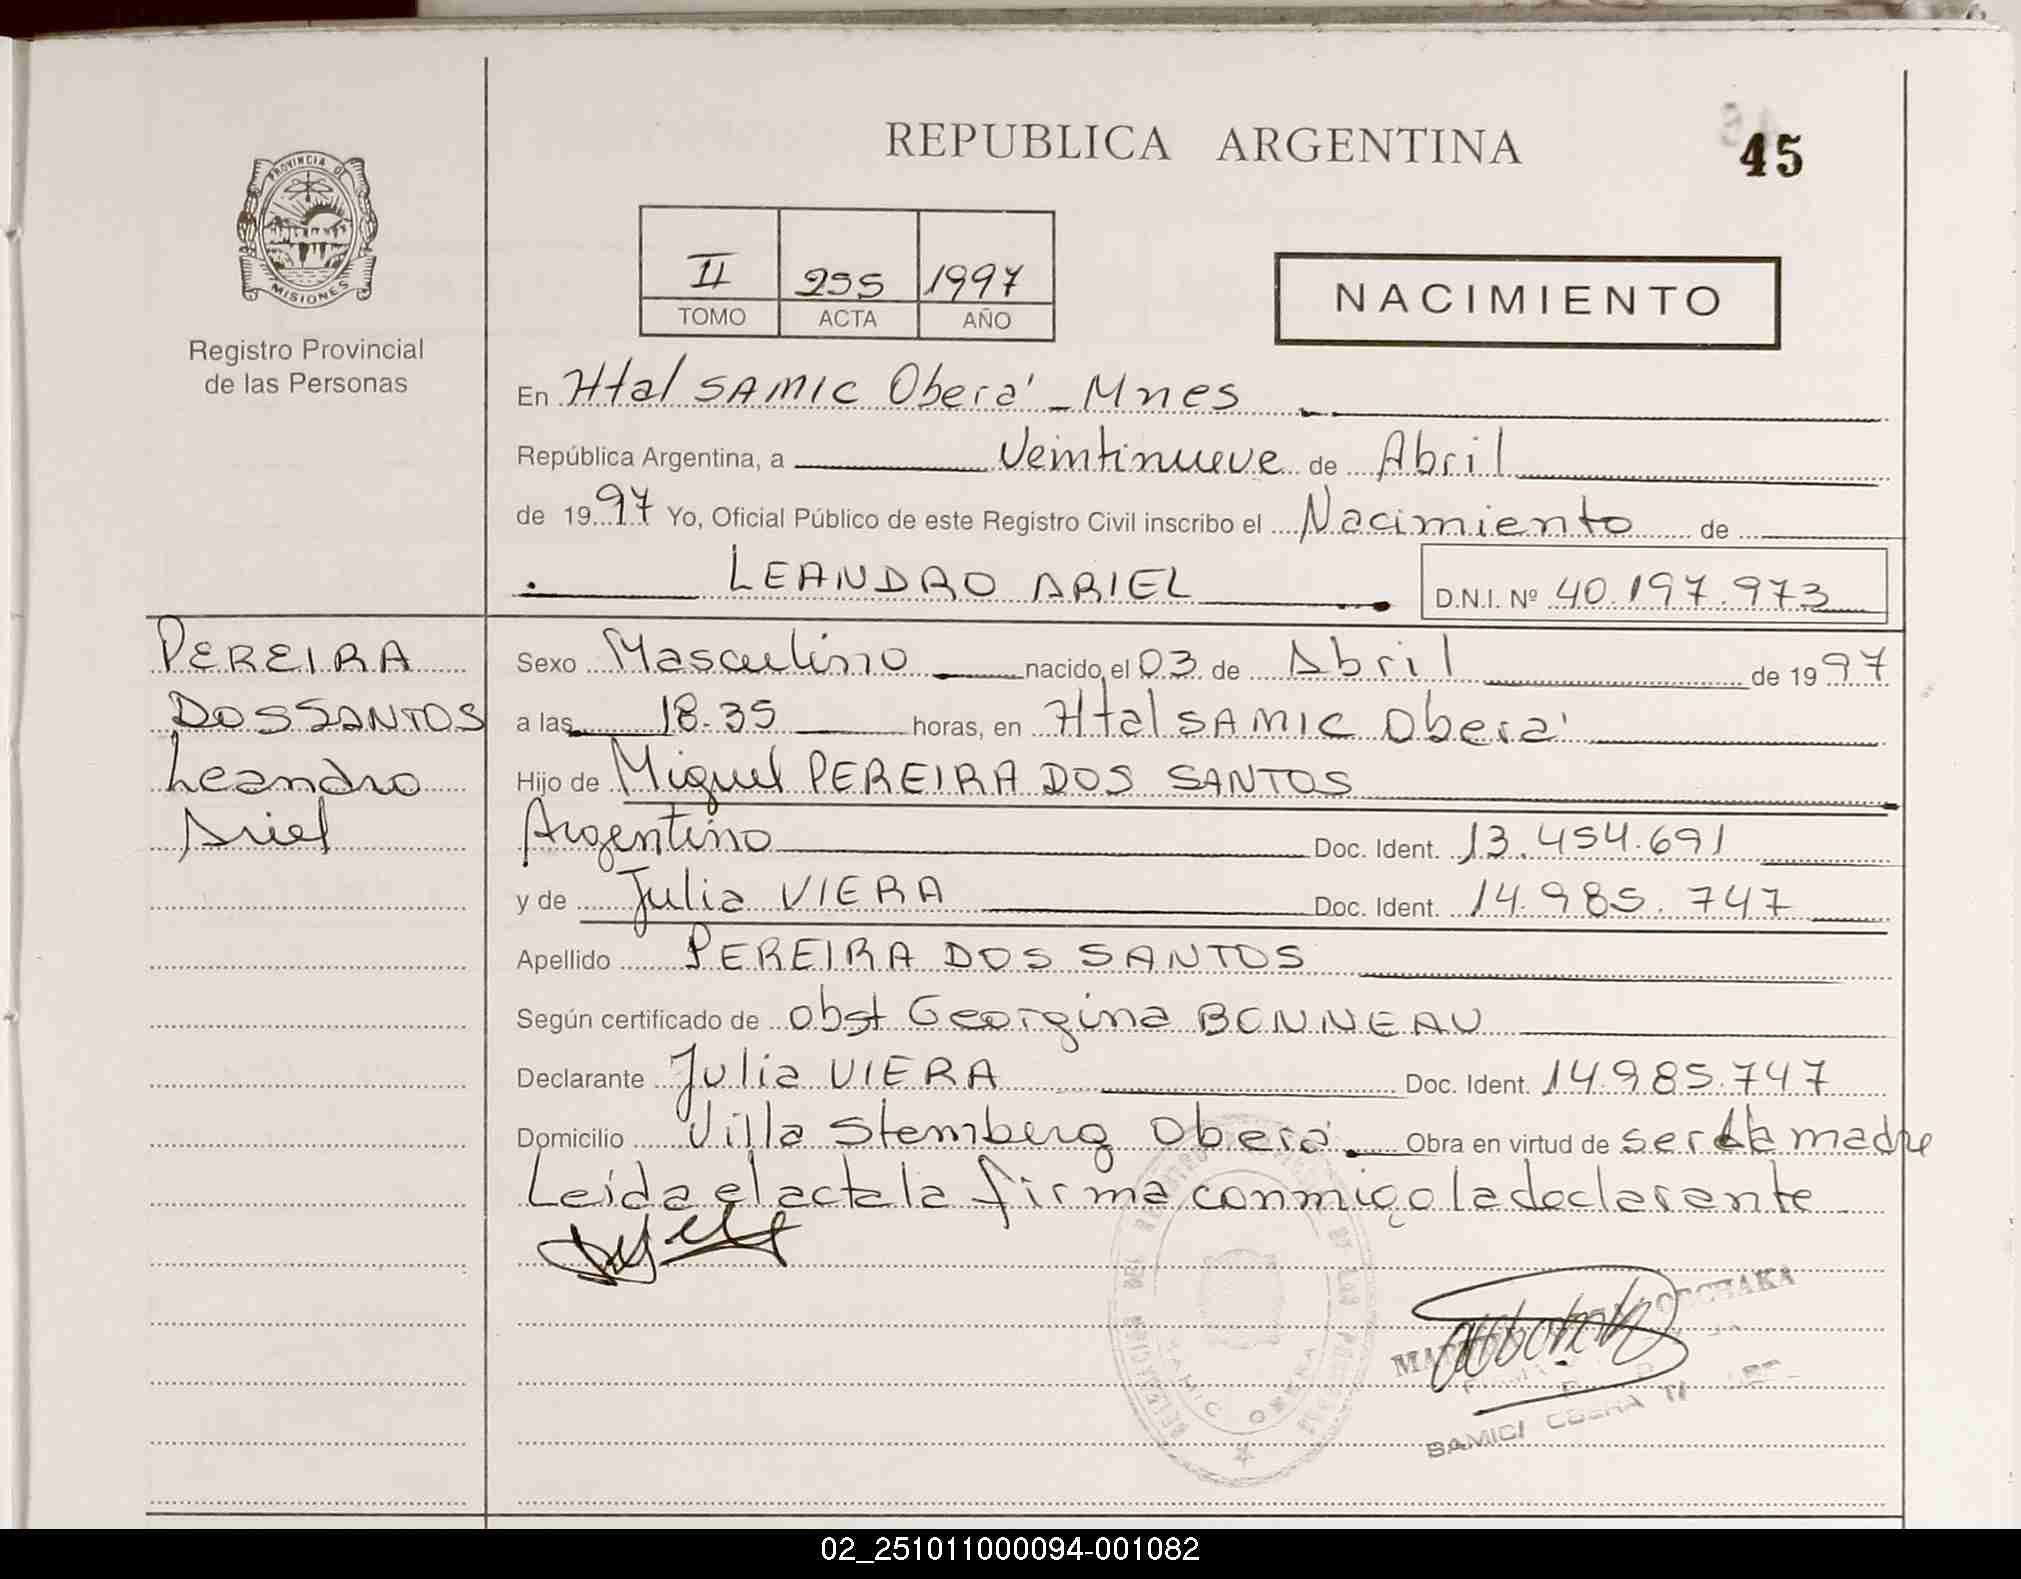 REPUBLICA ARGENTINA
45
PROVINCIA DE
MISIONES
Registro Provincial
de las Personas
II 255 1997
TOMO ACTA AÑO
NACIMIENTO
En Htal SAMIC Oberá - Mnes
República Argentina, a Veintinueve de Abril
de 1997 Yo, Oficial Público de este Registro Civil inscribo el Nacimiento de
LEANDRO ARIEL D.N.I. Nº 40.197.973
PEREIRA
DOS SANTOS
Leandro
Ariel
Sexo Masculino nacido el 03 de Abril de 1997
a las 18.35 horas, en Htal SAMIC Oberá
Hijo de Miguel PEREIRA DOS SANTOS
Argentino Doc. Ident. 13.454.691
y de Julia VIERA Doc. Ident. 14.985.747
Apellido PEREIRA DOS SANTOS
Según certificado de obst Georgina BONNEAU
Declarante Julia VIERA Doc. Ident. 14.985.747
Domicilio Villa Stemberg Oberá Obra en virtud de ser la madre
Leída el acta la firma conmigo la declarante
SAMIC OBERA
02_251011000094-001082